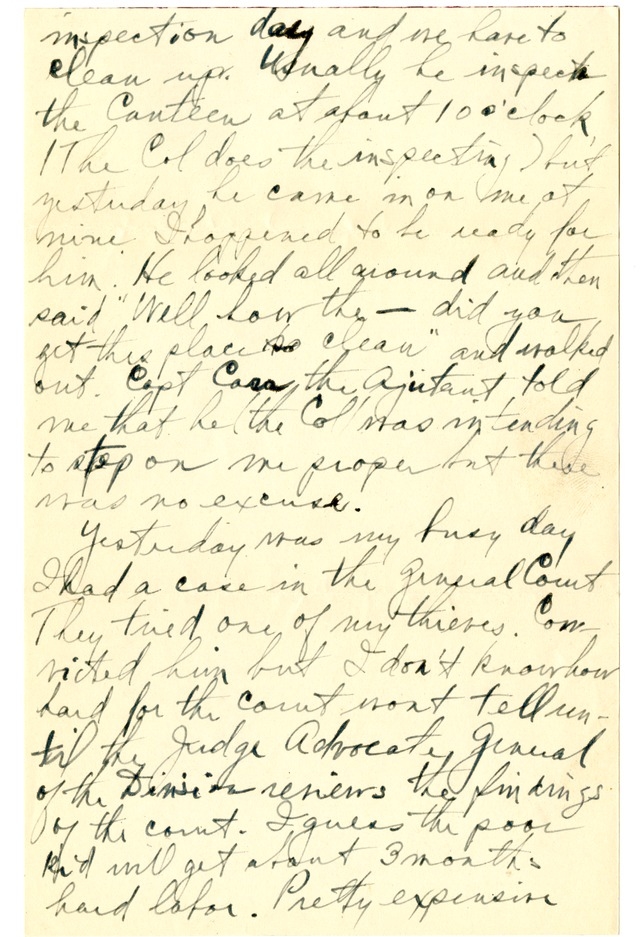 inspection day and we have to
clean up. Usually he inspects
the Canteen at about 10 o'clock
(The Col does the inspecting) but
yesterday he came in on me at
nine I happened to be ready for
him. He looked all around and then
said "Well how the — did you
get this place so clean" and walked
out. Capt the Ajutant told
me that he (the Col) was intending
to step on me proper but there
was no excuse.
Yesterday was my busy day
I had a case in the General Court
They tried one of my thieves. Con-
victed him but I don't know how
hard for the court wont tell un-
til the Judge Advocate General
of the Division reviews the findings
of the court. I guess the poor
kid will get about 3 months
hard labor. Pretty expensive